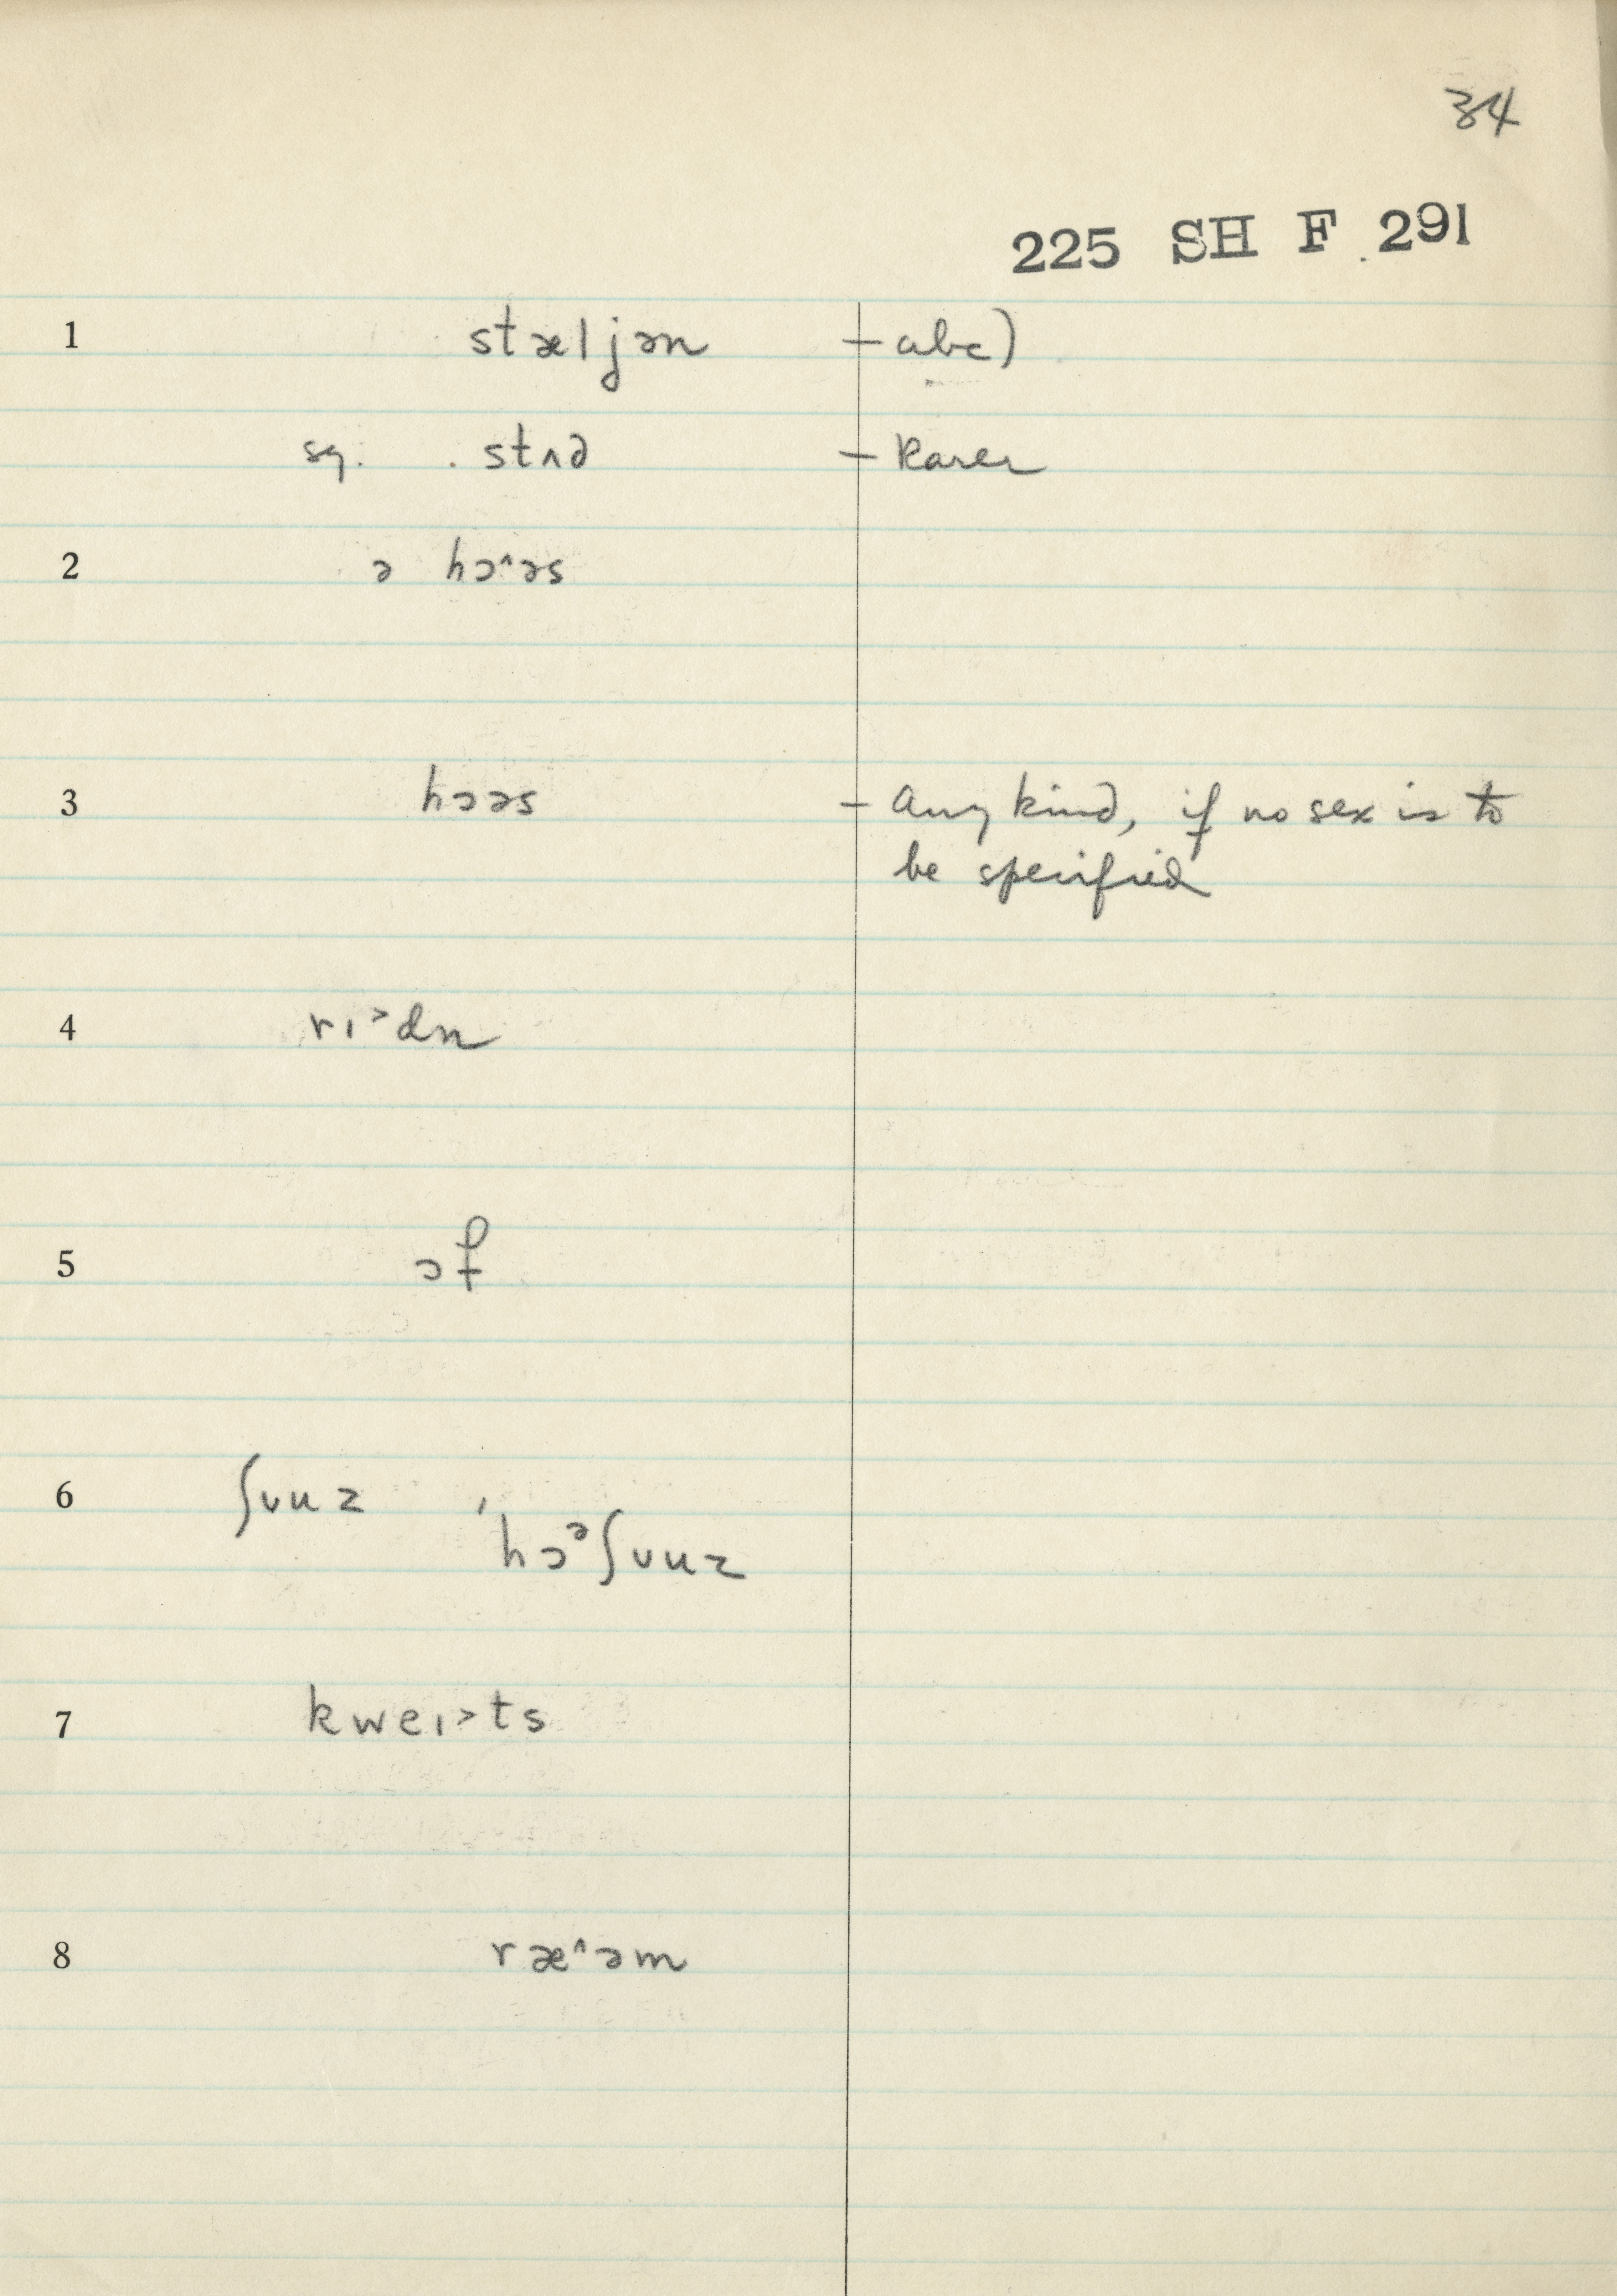 34
225 SH F 291
1 stæljən – abc)
sq. stʌd – Rarer
2 ə hɔ˄əs
3 hɔəs – Any kind, if no sex is to
be specified
4 rɪ˃dn
5 ɔf
6 ʃʊuz ,
hɔᵊʃʊuz
7 kweɪ˃ts
8 ræ˄əm